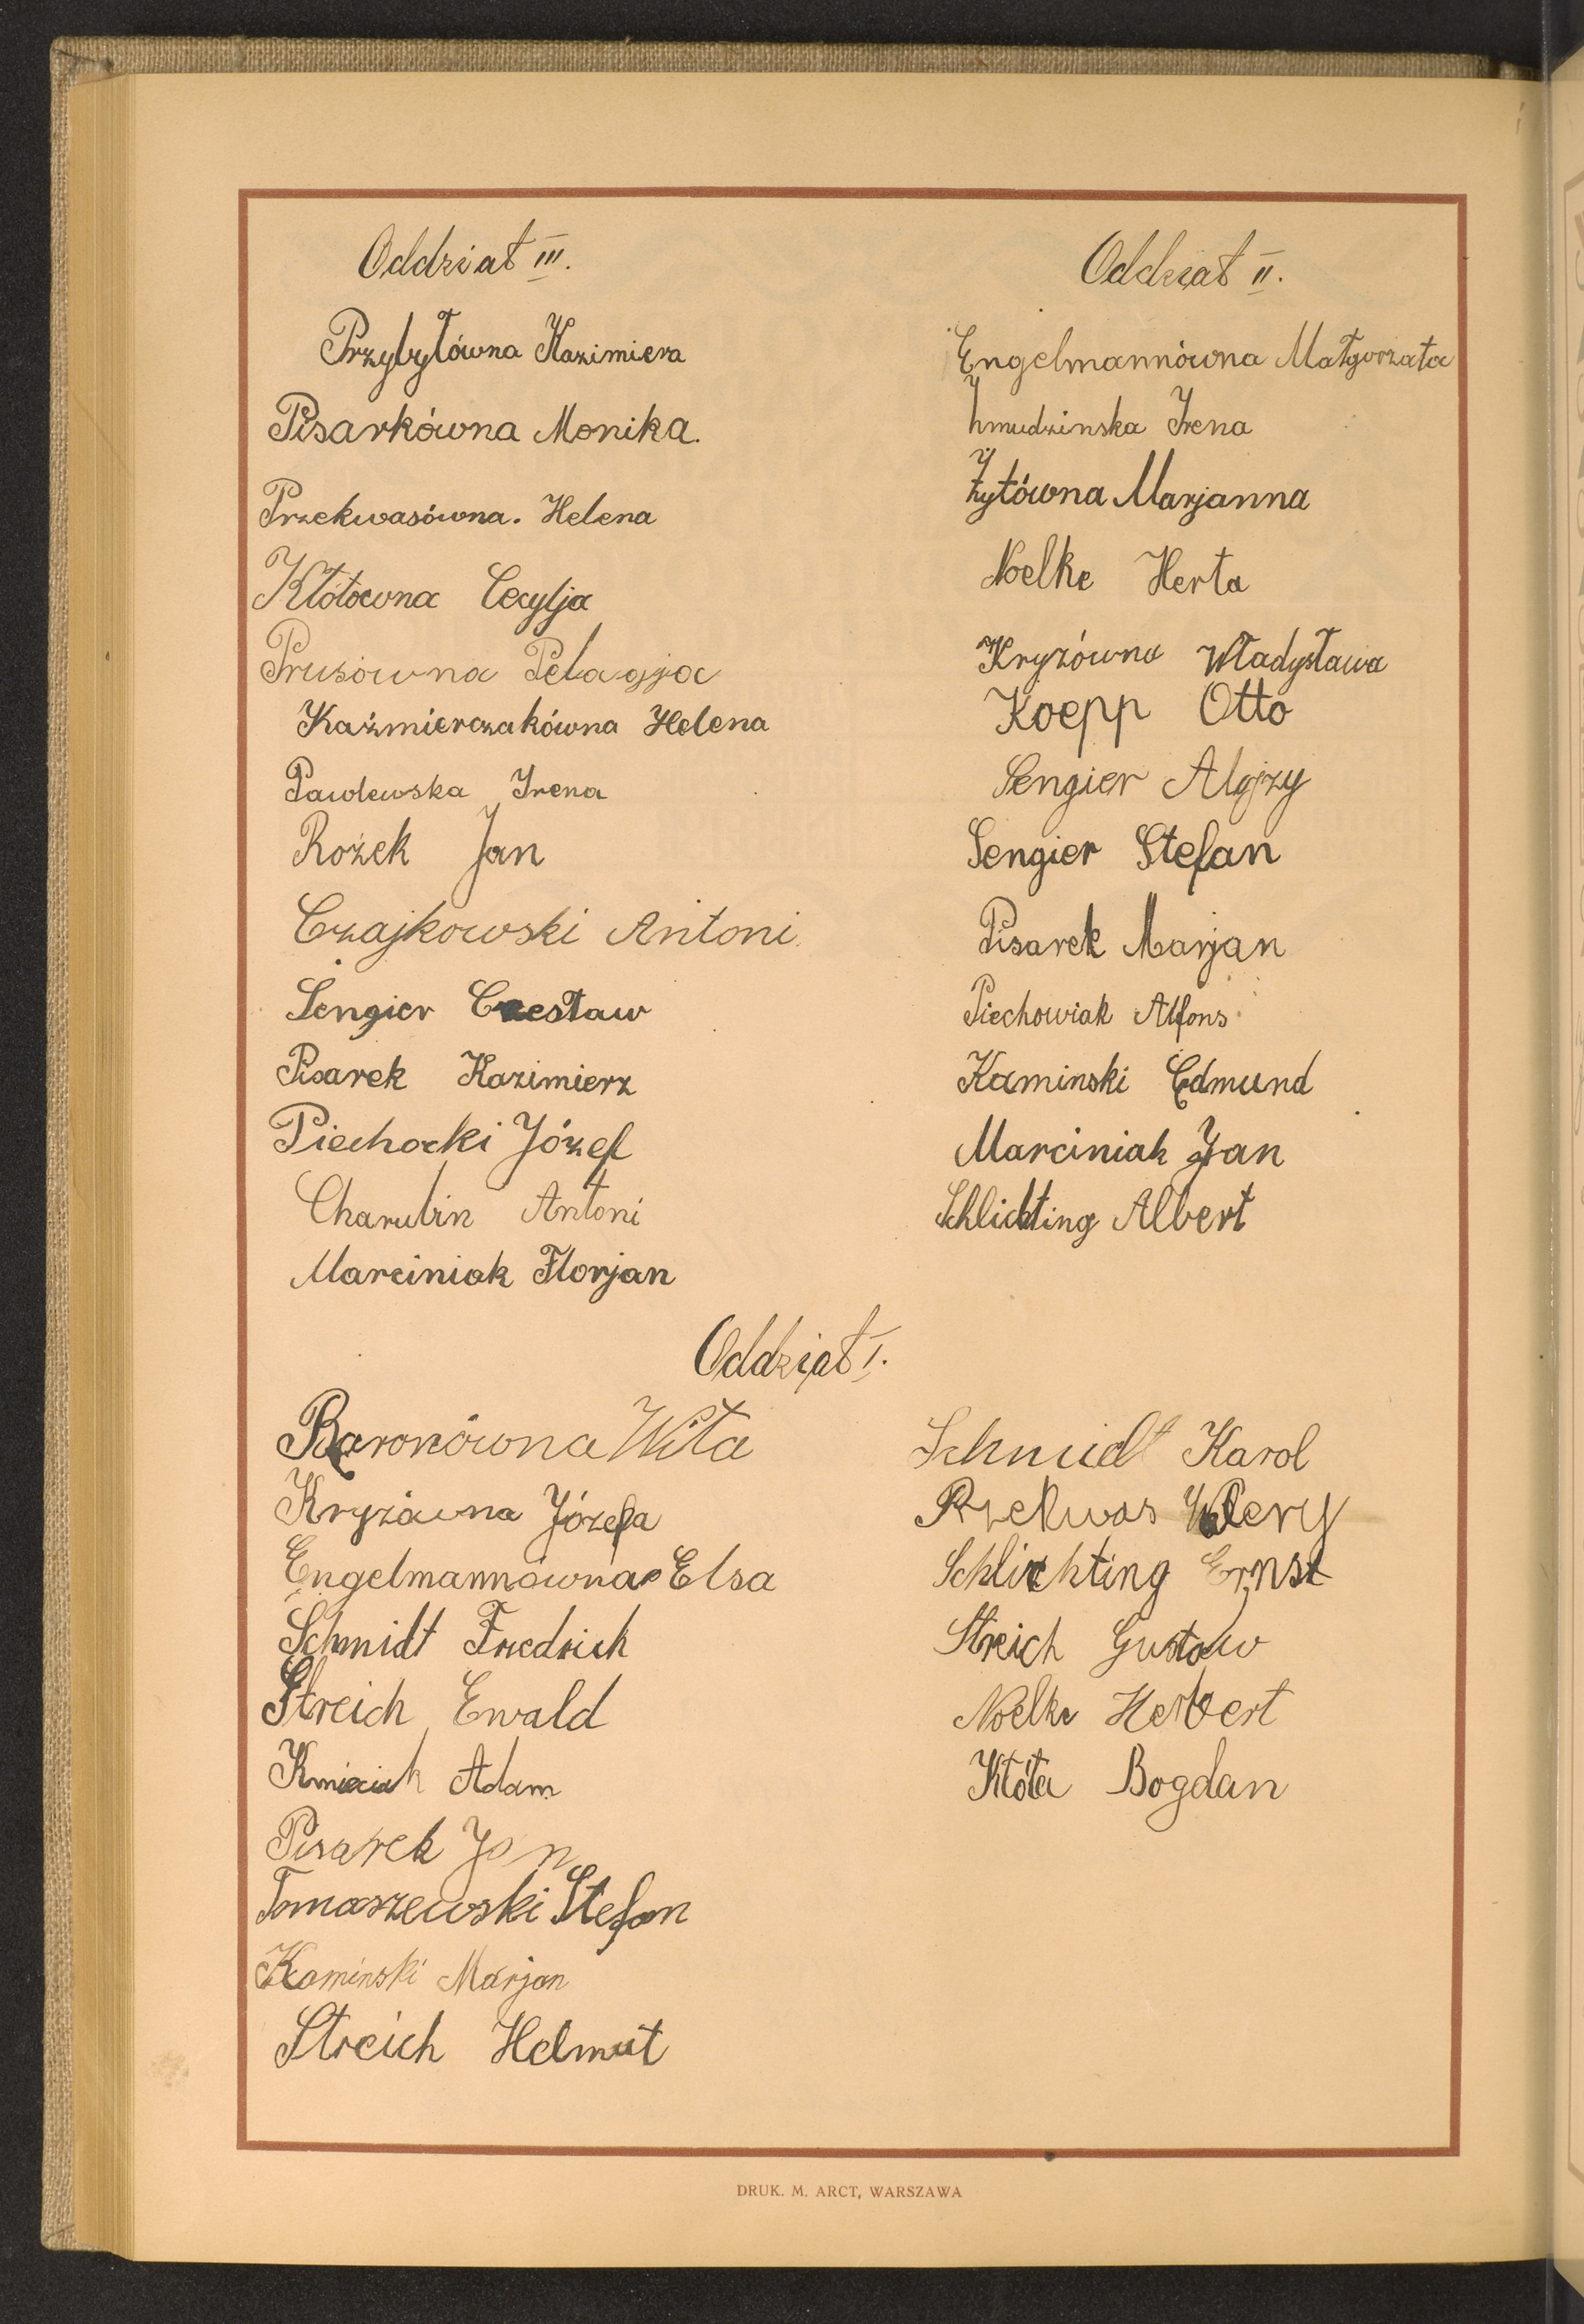 Oddział III.
Przybyłówna Kazimiera
Pisarkówna Monika.
Przekwasówna. Helena
Kłótówna Cecylja
Prusówna Pelagja
Kaźmierczakówna Helena
Pawlewska Irena
Rożek Jan
Czajkowski Antoni
Sengier Czesław
Pisarek Kazimierz
Piechocki Józef
Charubin Antoni
Marciniak Florjan
Oddział II.
Engelmannówna Małgorzata
Żmudzinska Irena
Żytówna Marjanna
Noelke Herta
Kryzówna Władysława
Koepp Otto
Sengier Alojzy
Sengier Stefan
Pisarek Marjan
Piechowiak Alfons
Kaminski Edmund
Marciniak Jan
Schlichting Albert
Oddział I.
Baronówna Wita
Kryzówna Józefa
Engelmannówna Elsa
Schmidt Friedrich
Streich Ewald
Kmieciak Adam
Pisarek Jan
Tomaszewski Stefan
Kaminski Marjan
Streich Helmut
Schmidt Karol
Przekwas Walery
Schlichting Ernst
Streich Gustaw
Noelke Herbert
Kłóta Bogdan
DRUK. M. ARCT, WARSZAWA